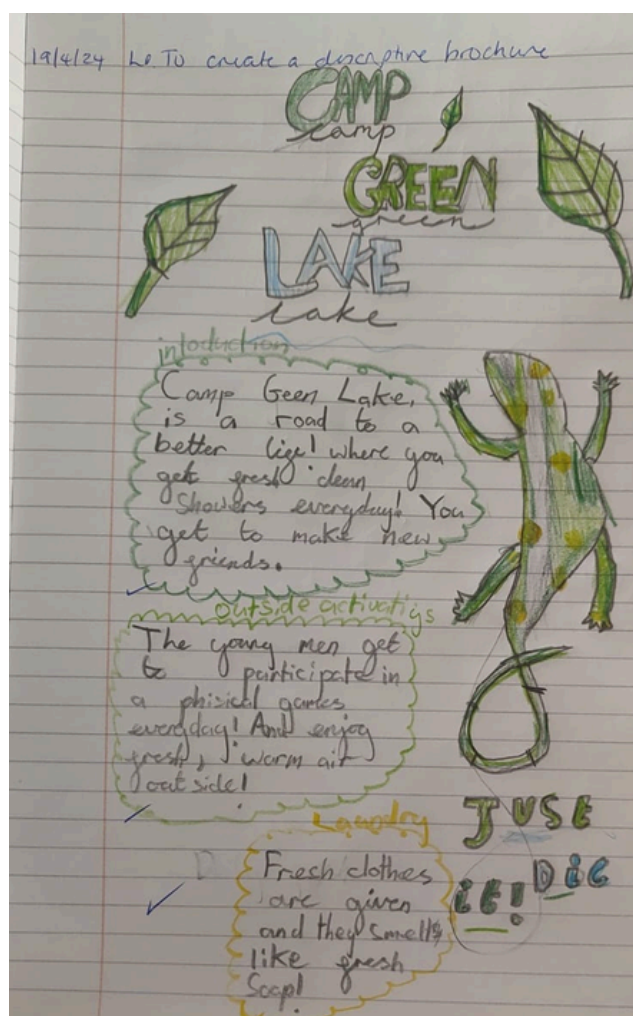 19/4/24 Lo To create a discriptive brochure
CAMP
camp
GREEN
green
LAKE
lake
intoduction
Camp Geen Lake,
is a road to a
better life! where you
get fresh clean
Showers everyday! You
get to make new
friends.
outside activatiys
The young men get
to participate in
a phisical games
everyday! And enjoy
fresh, warm air
outside!
Laundry
Fresh clothes
are given
and they smells
like fresh
Soap!
JUSt
Dig
it!